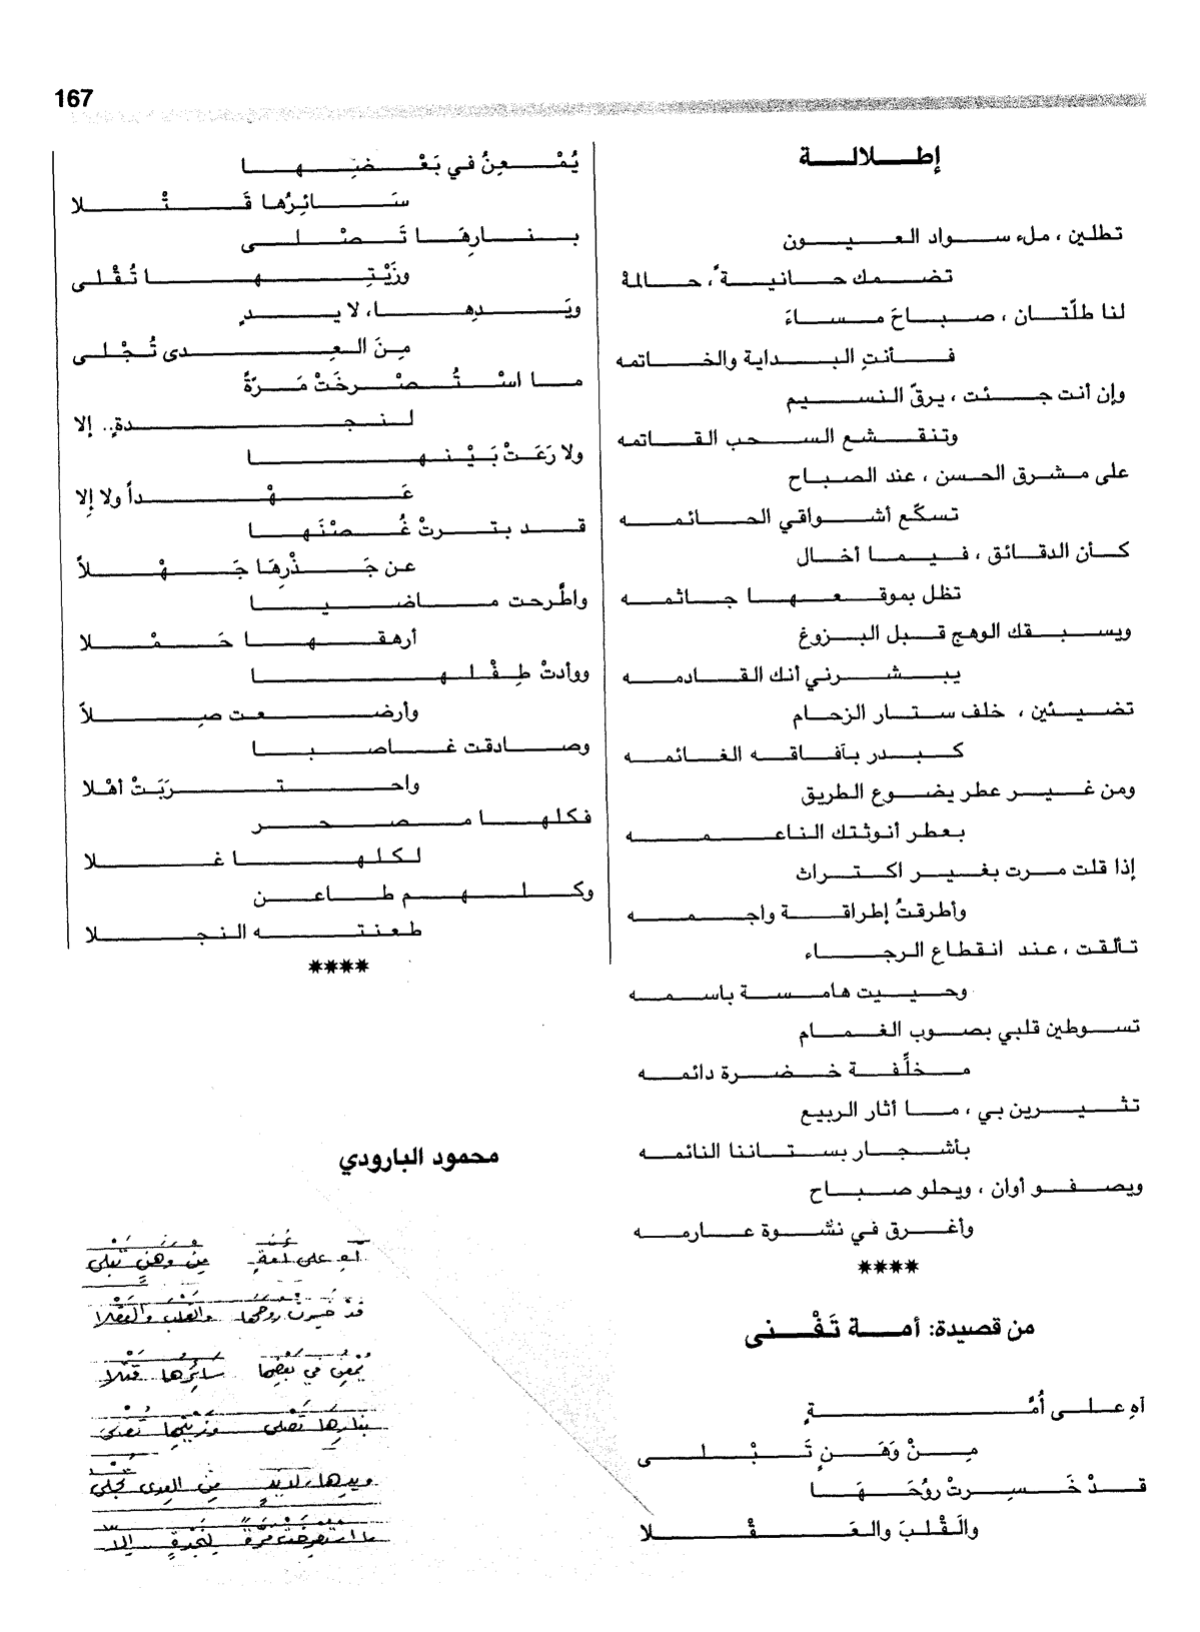 167
إطلالة
تطلين ، ملء سواد العيون
تضمك حانيةً، حالمة
لنا طلّتان ، صباحَ مساءَ
فأنتِ البداية والخاتمه
وإن أنت جئت ، يرقّ النسيم
وتنقشع السحب القاتمه
على مشرق الحسن ، عند الصباح
تسكّع أشواقي الحائمه
كأن الدقائق ، فيما أخال
تظل بموقعها جاثمه
ويسبقك الوهج قبل البزوغ
يبشرني أنك القادمه
تضيئين ، خلف ستار الزحام
كبدر بآفاقه الغائمه
ومن غير عطر يضوع الطريق
بعطر أنوثتك الناعمه
إذا قلت مرت بغير اكتراث
وأطرقتُ إطراقة واجمه
تألقت ، عند انقطاع الرجاء
وحييت هامسة باسمه
تسوطين قلبي بصوب الغمام
مخلِّفة خضرة دائمه
تثيرين بي ، ما أثار الربيع
بأشجار بستاننا النائمه
ويصفو أوان ، ويحلو صباح
وأغرق في نشوة عارمه
****
من قصيدة: أمة تَفْنى
آهِ على أُمَّةٍ
مِنْ وَهَنٍ تَبْلى
قدْ خَسِرتْ روُحَهَا
والَقْلبَ والعَقْلا
يُمْعِنُ في بَعْضِها
سَائِرُها قَتْلا
بنارِهَا تَصْلى
وزَيْتِها تُقْلى
ويَدِها، لا يدٍ
مِنَ العِدى تُجْلى
ما اسْتُصْرخَتْ مَرّةً
لنجدةٍ.. إلا
ولا رَعَتْ بَيْنها
عَهْداً ولا إلا
قد بترتْ غُصْنَها
عن جَذْرِهَا جَهْلاً
واطَّرحت ماضيا
أرهقها حَمْلا
ووأدتْ طِفْلها
وأرضعت صِلاً
وصادقت غاصبا
واحتربَتْ أهْلا
فكلها مصحر
لكلها غلا
وكلهم طاعن
طعنته النجلا
****
محمود البارودي
آهِ على أمةٍ من وهنٍ تَبْلى
قدْ خسرتْ روحَها والقلبَ والعَقْلا
يُمْعِنُ في بَعْضِها سائرُها قَتْلا
بنارِهَا تَصْلى وزَيْتِها تُقْلى
ويدِها، لا يدٍ مِنَ العِدى تُجْلى
ما استصرختْ مرّةً لِنَجْدةٍ إلّا